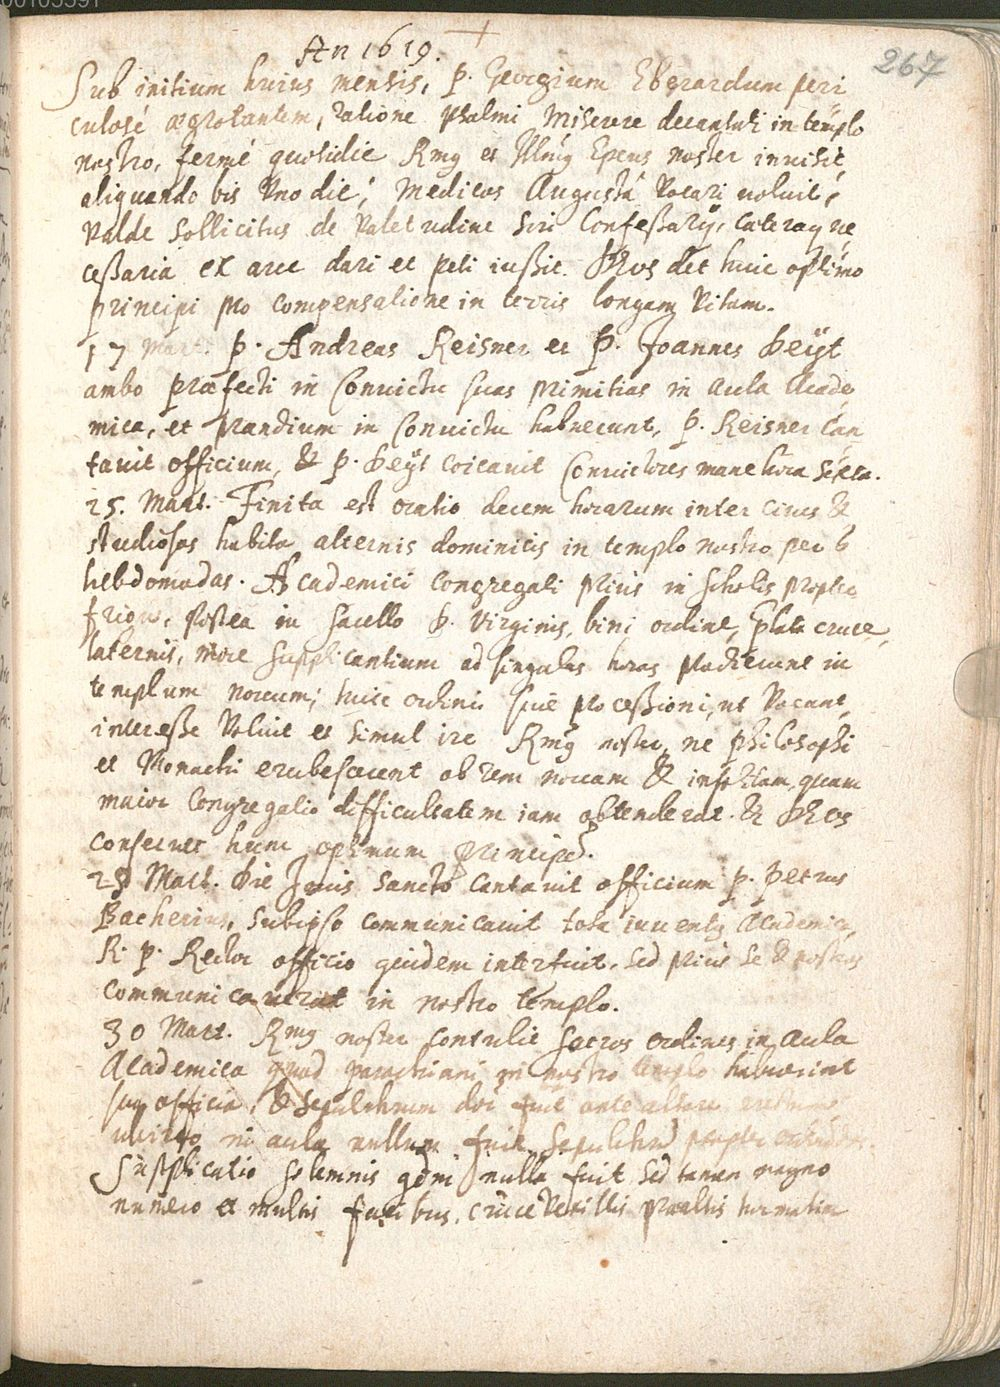 267
An 1619.
Sub initium huius mensis, P. Georgium Eberardum peri
culosè ægrotantem, ratione psalmi Miserere decantati in templo
nostro, fermè quotidie Rmg et Illmg Epcus noster invisit,
aliquando bis uno die; Medicos Augustâ vocari uoluit;
valde sollicitus de valetudine sui Confessarij, cæteraq ne
cessaria ex arce dari et peti iussit. Deus det huic optimo
principi pro compensatione in terris longam vitam.
17 Mart. P. Andreas Reisner et P. Joannes Deyt
ambo præfecti in Convictu suas primitias in aula Acade
mica, et prandium in Convictu habuerunt, P. Reisner Can
tavit officium, & P. Deyt coicavit Convictores mane hora sexta.
25. Mart. Finita est oratio decem horarum inter cives &
studiosos habita alternis dominicis in templo nostro per 6
hebdomadas. Academici congregati prius in scholis propter
frigus, postea in sacello B. Virginis, bini ordine, plata cruce,
laternis, more supplicantium ad singulas horas prodierunt in
templum novum; huic ordini sive processioni, ut vocant,
interesse voluit et simul ire Rmg noster, ne philosophi
et Monachi erubescerent ob rem novam & insolitam, quam
maior Congregatio difficultatem iam obtenderat. & Deus
conservet hunc optimum principē.
28 Mart. Die Jovis sancto cantavit officium P. Petrus
Bacherius, sub ipso communicavit tota iuventg Academica,
R. P. Rector officio quidem interfuit, sed prius se & nostros
communicaverat in nostro templo.
30 Mart. Rmg noster contulit sacros ordines in aula
Academica quod parochiani in nostro templo habuerint
sua officia, & sepulchrum dni fuit ante altare
in aula nullum fuit sepulchrū propter
Supplicatio solemnis nulla fuit sed tamen magno
numero et multis facibus, cruce vexillis prælatis